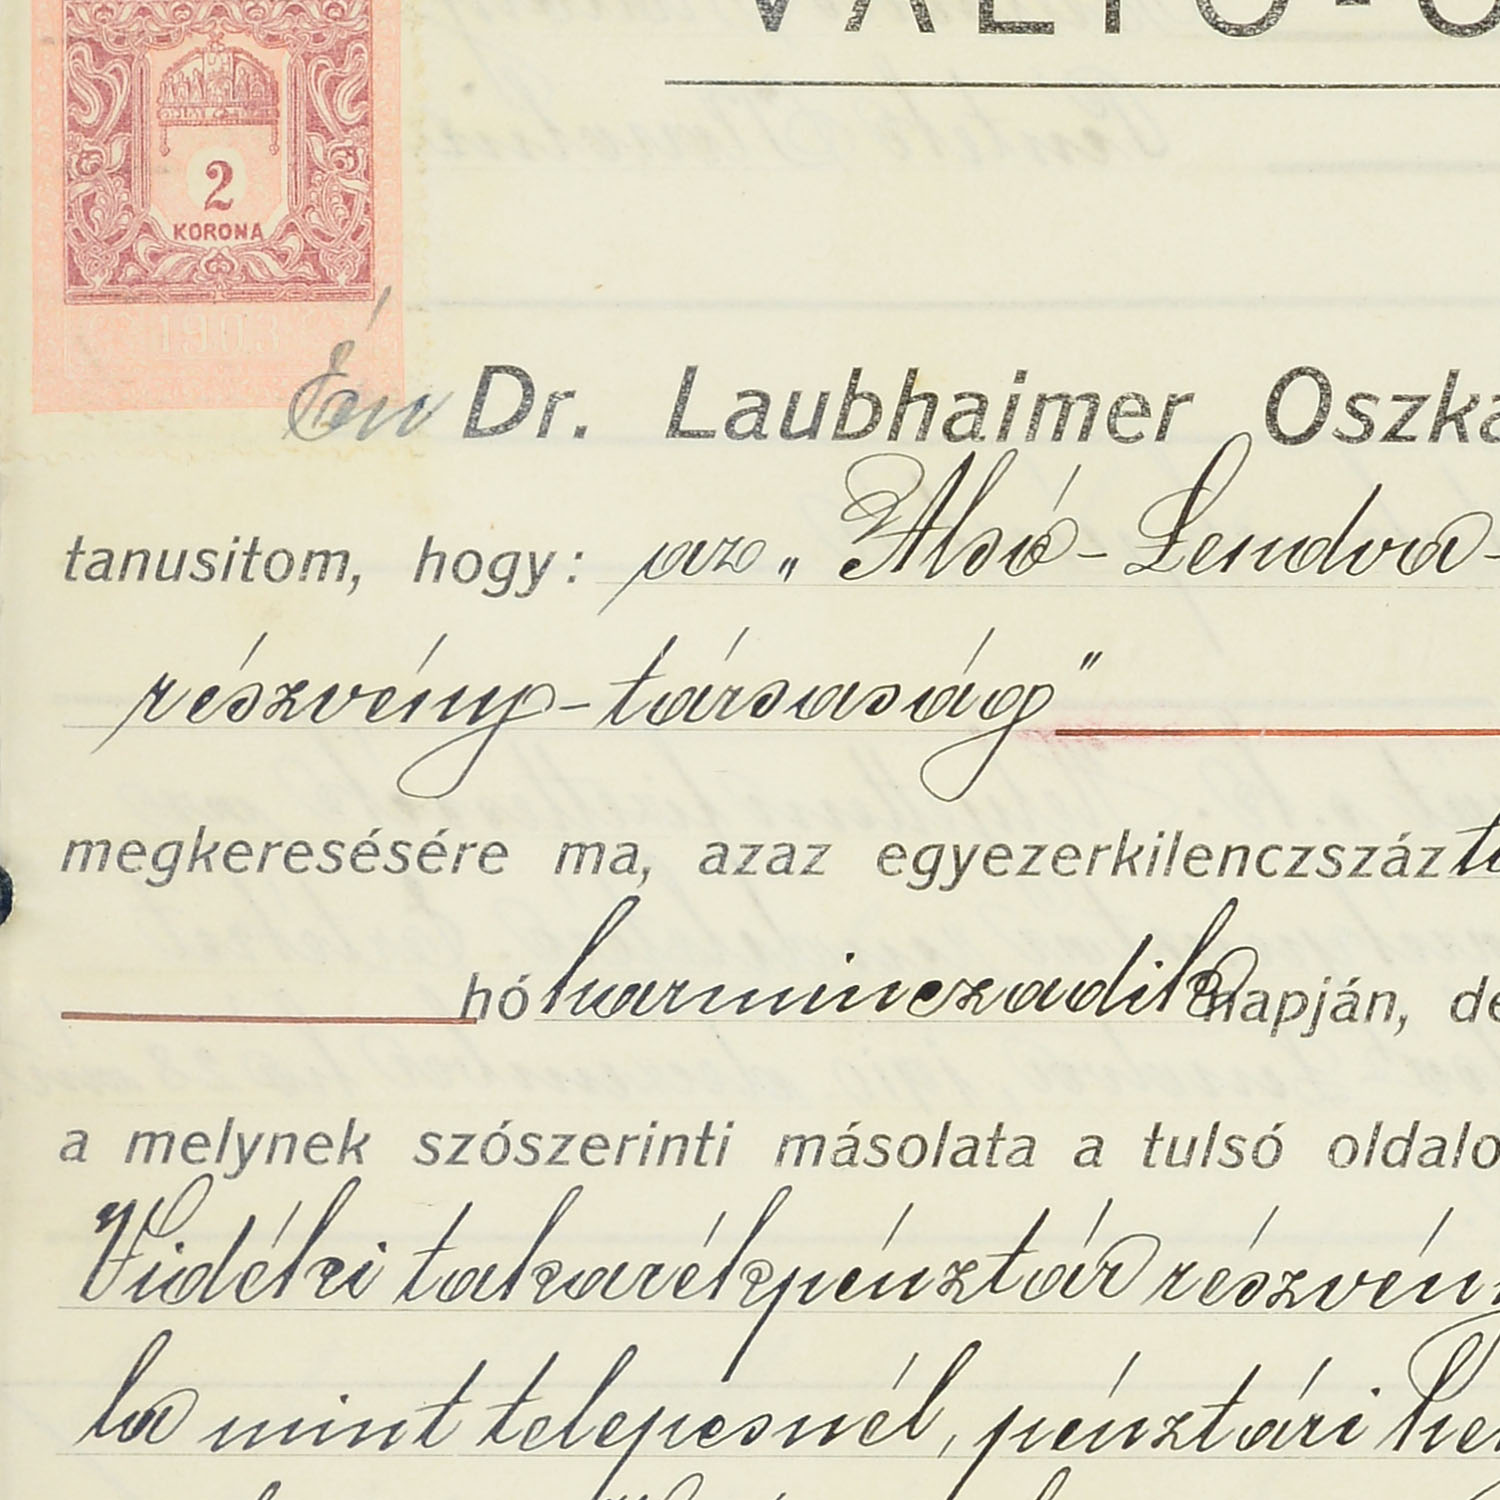 VÁLTÓ-Ó
2
KORONA
1903
Én Dr. Laubhaimer Oszká
tanusitom, hogy: az „Alsó-Lendva-
részvény-társaság"
megkeresésére ma, azaz egyezerkilenczszáz
hó harminczadik napján, de
a melynek szószerinti másolata a tulsó oldalo
Vidéki takarékpénztár részvén
la mint telepesnél, pénztári he